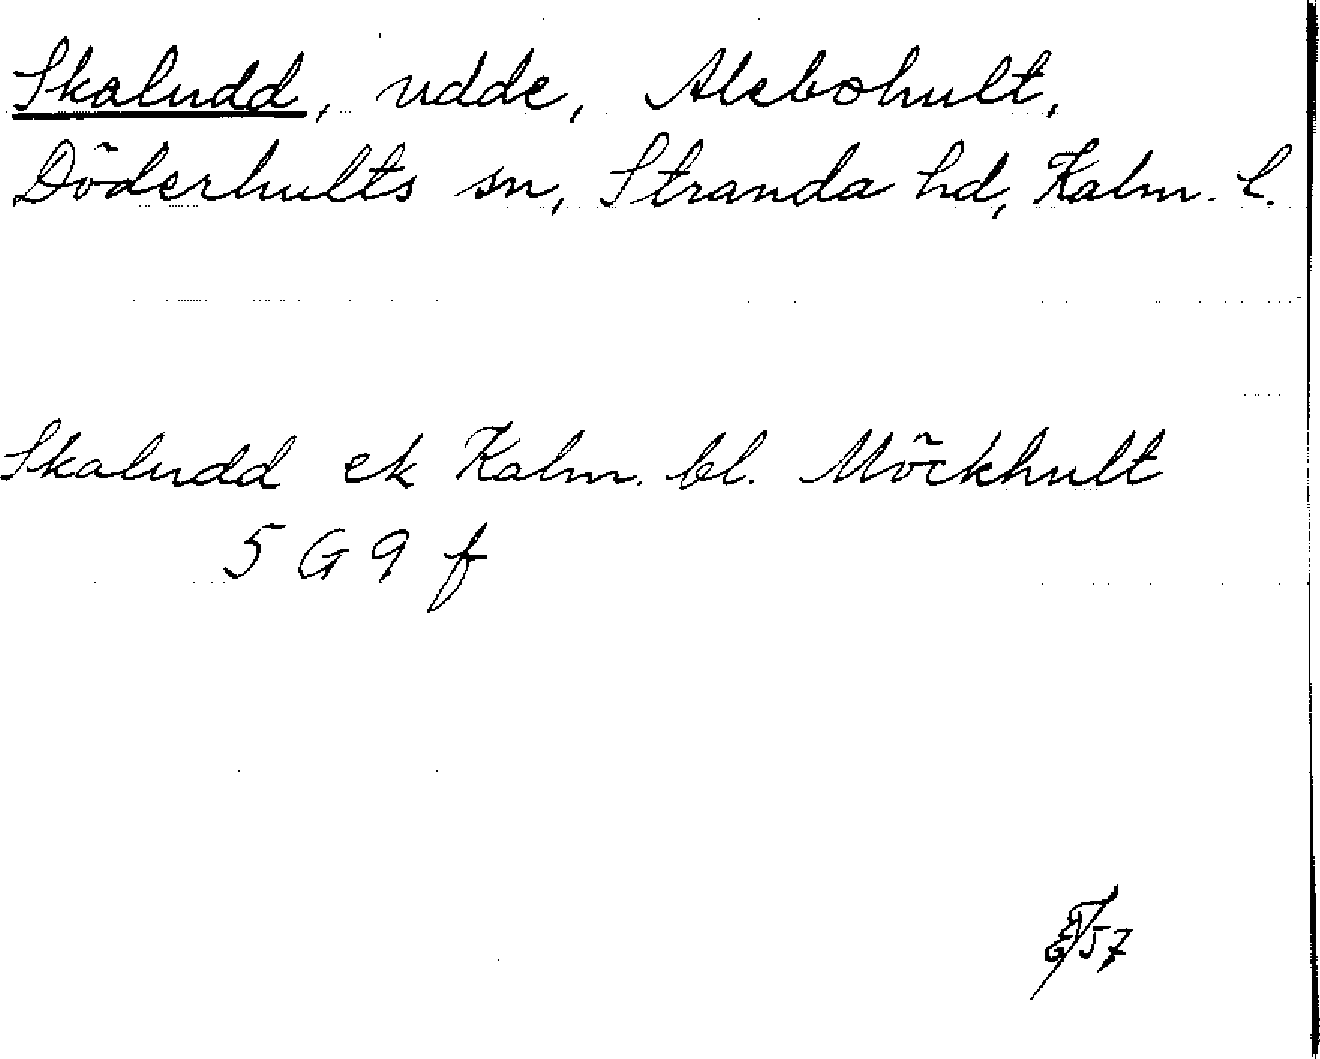 Skaludd, udde, Alebohult,
Döderhults sn, Stranda hd, Kalm. l.
Skaludd ek Kalm. bl. Möckhult
5 G 9 f
57